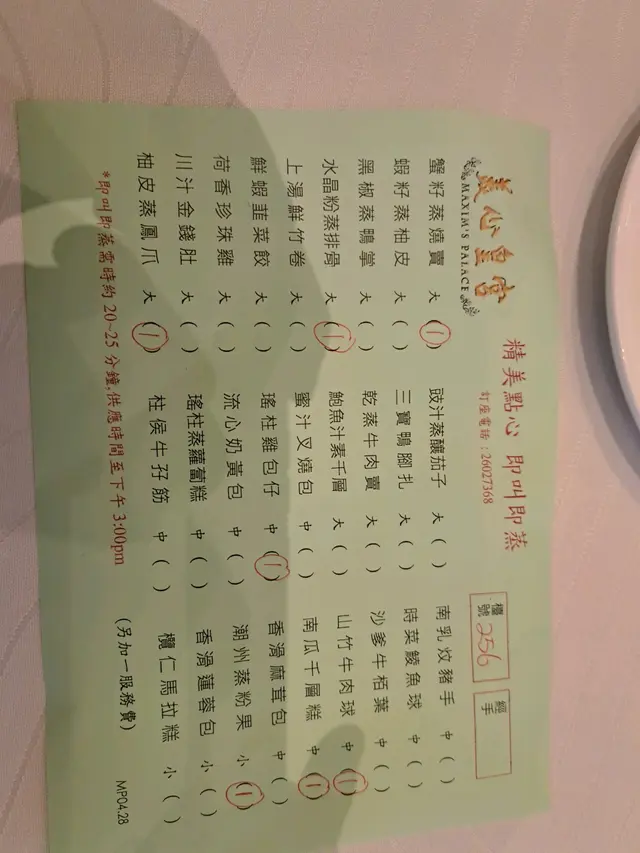 美心皇宮
MAXIM'S PALACE
精美點心 即叫即蒸
訂座電話:26027368
檯號 256
經手
蟹籽蒸燒賣 大 (1)
蝦籽蒸柚皮 大 ( )
黑椒蒸鴨掌 大 ( )
水晶粉蒸排骨 大 (1)
上湯鮮竹卷 大 ( )
鮮蝦韮菜餃 大 ( )
荷香珍珠雞 大 ( )
川汁金錢肚 大 ( )
柚皮蒸鳳爪 大 (1)
豉汁蒸釀茄子 大 ( )
三寶鴨腳扎 大 ( )
乾蒸牛肉賣 大 ( )
鮑魚汁素千層 大 ( )
蜜汁叉燒包 中 ( )
瑤柱雞包仔 中 (1)
流心奶黃包 中 ( )
瑤柱蒸蘿蔔糕 中 ( )
柱侯牛孖筋 中 ( )
南乳炆豬手 中 ( )
時菜鯪魚球 中 ( )
沙爹牛栢葉 中 ( )
山竹牛肉球 中 (1)
南瓜千層糕 中 (1)
香滑麻茸包 中 ( )
潮州蒸粉果 小 (1)
香滑蓮蓉包 小 ( )
欖仁馬拉糕 小 ( )
*即叫即蒸需時約 20~25 分鐘,供應時間至下午 3:00pm
(另加一服務費)
MP04.28